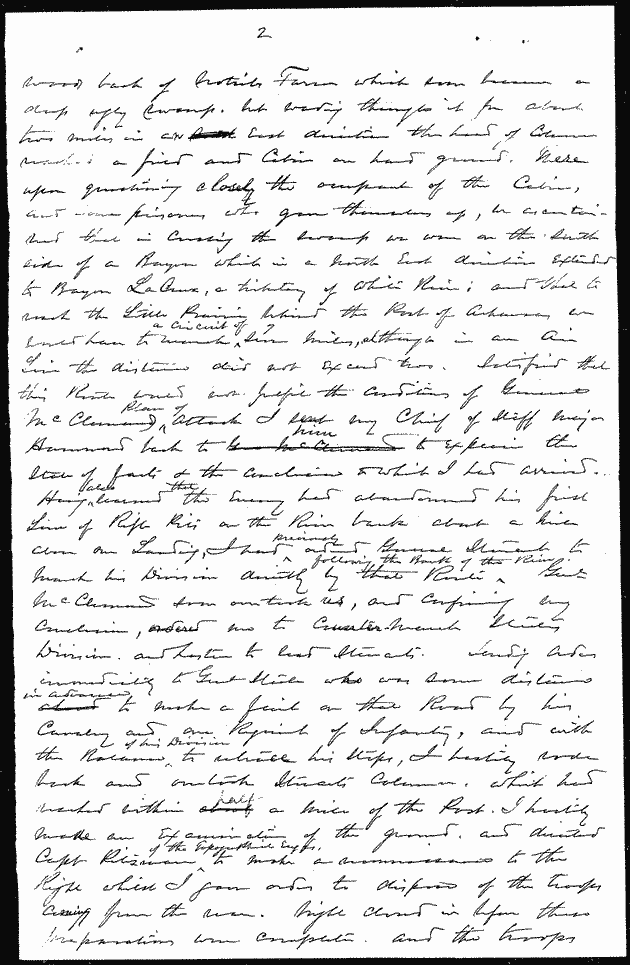 2
woods back of Notribs Farm which soon became a
deep ugly swamp. but wading through it for about
two miles in an East direction the head of Column
reached a field and Cabin on hard ground. Here
upon questioning closely the occupant of the Cabin,
and some prisoners who gave themselves up, we ascertai-
ned that in Crossing the swamp we were on the North
side of a Bayou which in a North East direction extended
to Bayou LaCrux, a tributary of White River; and that to
reach the Little Prairie behind the Post of Arkansas we
would have to march a Circuit of 7 miles, although in an Air
Line the distance did not exceed two. Satisfied that
this Route would not fulfil the conditions of General
McClernands Plan of Attack I sent my Chief of Staff Major
Hammond back to him to explain the
State of facts & the conclusion to which I had arrived.
Having also learned that the Enemy had abandoned his first
Line of Rifle Pits on the River bank about a mile
above our Landing, I had previously ordered General Stuart to
March his Division directly by that Route following the Bank of the River. Genl
McClernand soon overtook us, and confirming my
Conclusion, ordered me to Counter-March Steeles
Division. and hasten to lead Stuarts. Sending orders
immediately to Genl Steele who was some distance
in advance to make a feint on that Road by his
Cavalry and one Regiment of Infantry, and with
the Balance of his Division to retrace his steps, I hastily rode
back and overtook Stuarts Column. which had
reached within half a mile of the Post. I hastily
made an Examination of the ground. and directed
Capt Pitzman of the Topographical Engrs. to make a reconnaissance to the
Right whilst I gave orders to dispose of the troops
coming from the rear. Night closed in before these
preparations were complete. and the troops